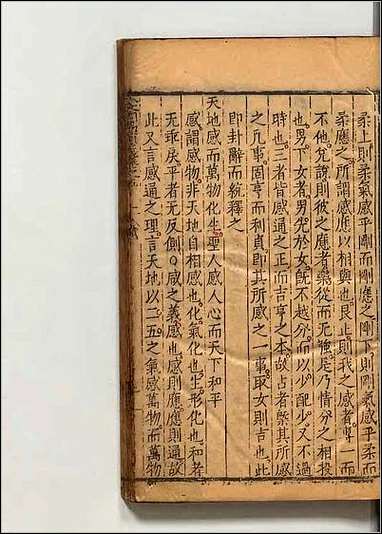 柔上則柔氣感乎剛而剛應之剛下則剛氣感乎柔而
柔應之所謂感應以相與也艮止則我之感者專一而
不他兌說則彼之應者樂從而無強是乃情分之相投
也男下女者男先於女旣不越分而以少配少又不過
時也三者皆感通之正而吉亨之本故占者祭其所感
之凡事固亨而利貞即其所感之一事取女則吉也此
即卦辭而統釋之
天地感而萬物化生聖人感人心而天下和平
感謂感物非天地自相感也化氣化也生形化也和者
無乖戾平者無反側○感之義感也感則應應則通故
此又言感通之理言天地以二五之氣感萬物而萬物